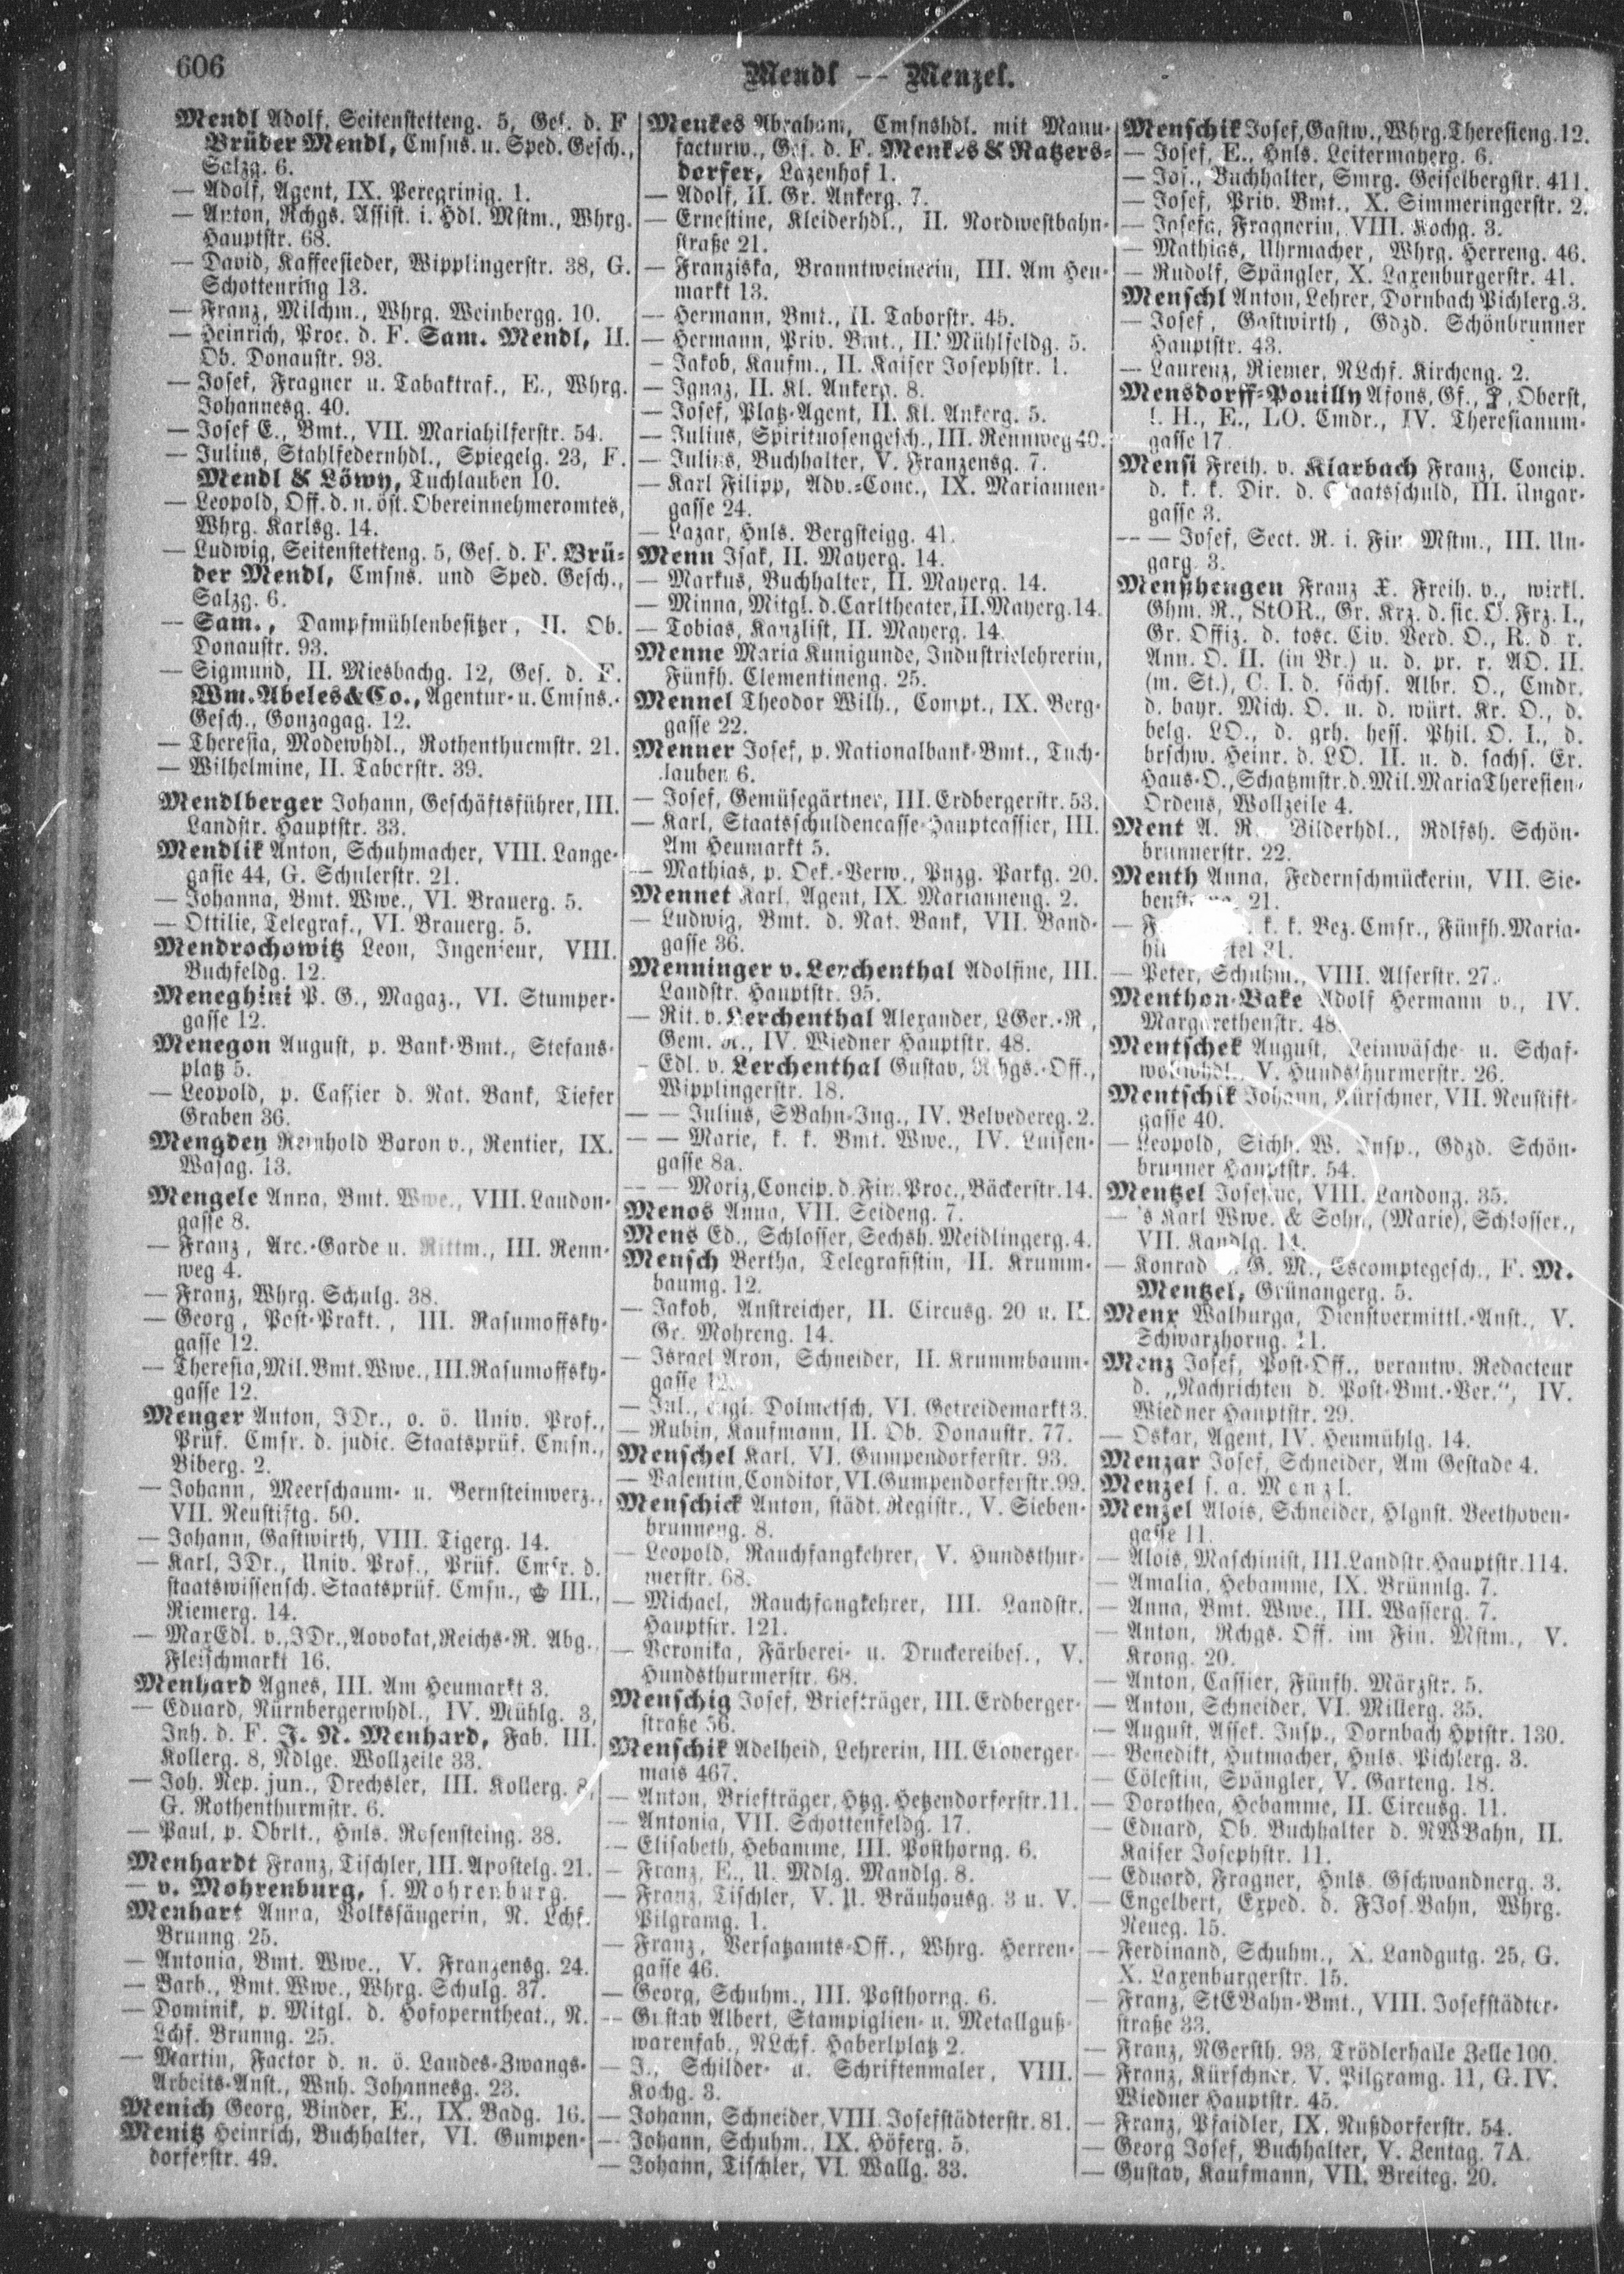 606
Mendl — Menzel.
Mendl Adolf, Seitenstetteng. 5, Ges. d. F
Brüder Mendl, Cmsns. u. Sped. Gesch.,
Salzg. 6.
— Adolf, Agent, IX. Peregrinig. 1.
— Anton, Rchgs. Assist. i. Hdl. Mstm., Whrg.
Hauptstr. 68.
— David, Kaffeesieder, Wipplingerstr. 38, G.
Schottenring 13.
— Franz, Milchm., Whrg. Weinbergg. 10.
— Heinrich, Proc. d. F. Sam. Mendl, II.
Ob. Donaustr. 93.
— Josef, Fragner u. Tabaktraf., E., Whrg.
Johannesg. 40.
— Josef E., Bmt., VII. Mariahilferstr. 54.
— Julius, Stahlfedernhdl., Spiegelg. 23, F.
Mendl & Löwy, Tuchlauben 10.
— Leopold, Off. d. n. öst. Obereinnehmeramtes,
Whrg. Karlsg. 14.
— Ludwig, Seitenstetteng. 5, Ges. d. F. Brü-
der Mendl, Cmsns. und Sped. Gesch.,
Salzg. 6.
— Sam., Dampfmühlenbesitzer, II. Ob.
Donaustr. 93.
— Sigmund, II. Miesbachg. 12, Ges. d. F.
Wm. Abeles & Co., Agentur- u. Cmsns.-
Gesch., Gonzagag. 12.
— Theresia, Modewhdl., Rothenthurmstr. 21.
— Wilhelmine, II. Taborstr. 39.
Mendlberger Johann, Geschäftsführer, III.
Landstr. Hauptstr. 33.
Mendlik Anton, Schuhmacher, VIII. Lange-
gasse 44, G. Schulerstr. 21.
— Johanna, Bmt. Wwe., VI. Brauerg. 5.
— Ottilie, Telegraf., VI. Brauerg. 5.
Mendrochowitz Leon, Ingenieur, VIII.
Buchfeldg. 12.
Meneghini P. G., Magaz., VI. Stumper-
gasse 12.
Menegon August, p. Bank-Bmt., Stefans-
platz 5.
— Leopold, p. Cassier d. Nat. Bank, Tiefer
Graben 36.
Mengden Reinhold Baron v., Rentier, IX.
Wasag. 13.
Mengele Anna, Bmt. Wwe., VIII. Laudon-
gasse 8.
— Franz, Arc.-Garde u. Rittm., III. Renn-
weg 4.
— Franz, Whrg. Schulg. 38.
— Georg, Post-Prakt., III. Rasumoffsky-
gasse 12.
— Theresia, Mil. Bmt. Wwe., III. Rasumoffsky-
gasse 12.
Menger Anton, JDr., o. ö. Univ. Prof.,
Prüf. Cmsr. d. judic. Staatsprüf. Cmsn.,
Biberg. 2.
— Johann, Meerschaum- u. Bernsteinwerz.,
VII. Neustiftg. 50.
— Johann, Gastwirth, VIII. Tigerg. 14.
— Karl, JDr., Univ. Prof., Prüf. Cmsr. d.
staatswissensch. Staatsprüf. Cmsn., III.,
Riemerg. 14.
— Max Edl. v., JDr., Advokat, Reichs-R. Abg.,
Fleischmarkt 16.
Menhard Agnes, III. Am Heumarkt 3.
— Eduard, Nürnbergerwhdl., IV. Mühlg. 3,
Inh. d. F. J. N. Menhard, Fab. III.
Kollerg. 8, Ndlge. Wollzeile 33.
— Joh. Nep. jun., Drechsler, III. Kollerg. 8,
G. Rothenthurmstr. 6.
— Paul, p. Obrlt., Hnls. Rosensteing. 38.
Menhardt Franz, Tischler, III. Apostelg. 21.
— v. Mohrenburg, s. Mohrenburg.
Menhart Anna, Volkssängerin, N. Lchf.
Brunng. 25.
— Antonia, Bmt. Wwe., V. Franzensg. 24.
— Barb., Bmt. Wwe., Whrg. Schulg. 37.
— Dominik, p. Mitgl. d. Hofoperntheat., N.
Lchf. Brunng. 25.
— Martin, Factor d. n. ö. Landes-Zwangs-
Arbeits-Anst., Wnh. Johannesg. 23.
Menich Georg, Binder, E., IX. Badg. 16.
Menitz Heinrich, Buchhalter, VI. Gumpen-
dorferstr. 49.
Menkes Abraham, Cmsnshdl. mit Manu-
facturw., Ges. d. F. Menkes & Ratzers-
dorfer, Lazenhof 1.
— Adolf, II. Gr. Ankerg. 7.
— Ernestine, Kleiderhdl., II. Nordwestbahn-
straße 21.
— Franziska, Branntweinerin, III. Am Heu-
markt 13.
— Hermann, Bmt., II. Taborstr. 45.
— Hermann, Priv. Bmt., II. Mühlfeldg. 5.
— Jakob, Kaufm., II. Kaiser Josephstr. 1.
— Ignaz, II. Kl. Ankerg. 8.
— Josef, Platz-Agent, II. Kl. Ankerg. 5.
— Julius, Spirituosengesch., III. Rennweg 40.
— Julius, Buchhalter, V. Franzensg. 7.
— Karl Filipp, Adv.-Conc., IX. Mariannen-
gasse 24.
— Lazar, Hnls. Bergsteigg. 41.
Menn Isak, II. Mayerg. 14.
— Markus, Buchhalter, II. Mayerg. 14.
— Minna, Mitgl. d. Carltheater, II. Mayerg. 14.
— Tobias, Kanzlist, II. Mayerg. 14.
Menne Maria Kunigunde, Industrielehrerin,
Fünfh. Clementineng. 25.
Mennel Theodor Wilh., Compt., IX. Berg-
gasse 22.
Menner Josef, p. Nationalbank-Bmt., Tuch-
lauben 6.
— Josef, Gemüsegärtner, III. Erdbergerstr. 53.
— Karl, Staatsschuldencasse-Hauptcassier, III.
Am Heumarkt 5.
— Mathias, p. Oek.-Verw., Pnzg. Parkg. 20.
Mennet Karl, Agent, IX. Marianneng. 2.
— Ludwig, Bmt. d. Nat. Bank, VII. Band-
gasse 36.
Menninger v. Lerchenthal Adolfine, III.
Landstr. Hauptstr. 95.
— Rit. v. Lerchenthal Alexander, LGer.-R.,
Gem. R., IV. Wiedner Hauptstr. 48.
— Edl. v. Lerchenthal Gustav, Rchgs.-Off.,
Wipplingerstr. 18.
— — Julius, SBahn-Ing., IV. Belvedereg. 2.
— — Marie, k. k. Bmt. Wwe., IV. Luisen-
gasse 8a.
— — Moriz, Concip. d. Fin. Proc., Bäckerstr. 14.
Menos Anna, VII. Seideng. 7.
Mens Ed., Schlosser, Sechsh. Meidlingerg. 4.
Mensch Bertha, Telegrafistin, II. Krumm-
baumg. 12.
— Jakob, Anstreicher, II. Circusg. 20 u. II.
Gr. Mohreng. 14.
— Israel Aron, Schneider, II. Krummbaum-
gasse 12.
— Jul., engl. Dolmetsch, VI. Getreidemarkt 3.
— Rubin, Kaufmann, II. Ob. Donaustr. 77.
Menschel Karl, VI. Gumpendorferstr. 93.
— Valentin, Conditor, VI. Gumpendorferstr. 99.
Menschick Anton, städt. Registr., V. Sieben-
brunneng. 8.
— Leopold, Rauchfangkehrer, V. Hundsthur-
merstr. 68.
— Michael, Rauchfangkehrer, III. Landstr.
Hauptstr. 121.
— Veronika, Färberei- u. Druckereibes., V.
Hundsthurmerstr. 68.
Menschig Josef, Briefträger, III. Erdberger-
straße 56.
Menschik Adelheid, Lehrerin, III. Erdberger-
mais 467.
— Anton, Briefträger, Htzg. Hetzendorferstr. 11.
— Antonia, VII. Schottenfeldg. 17.
— Elisabeth, Hebamme, III. Posthorng. 6.
— Franz, E., U. Mdlg. Mandlg. 8.
— Franz, Tischler, V. U. Bräuhausg. 3 u. V.
Pilgramg. 1.
— Franz, Versatzamts-Off., Whrg. Herren-
gasse 46.
— Georg, Schuhm., III. Posthorng. 6.
— Gustav Albert, Stampiglien- u. Metallguß-
warenfab., NLchf. Haberlplatz 2.
— J., Schilder- u. Schriftenmaler, VIII.
Kochg. 3.
— Johann, Schneider, VIII. Josefstädterstr. 81.
— Johann, Schuhm., IX. Höferg. 5.
— Johann, Tischler, VI. Wallg. 33.
Menschik Josef, Gastw., Whrg. Theresieng. 12.
— Josef, E., Hnls. Leitermayerg. 6.
— Jos., Buchhalter, Smrg. Geiselbergstr. 411.
— Josef, Priv. Bmt., X. Simmeringerstr. 2.
— Josefa, Fragnerin, VIII. Kochg. 3.
— Mathias, Uhrmacher, Whrg. Herreng. 46.
— Rudolf, Spängler, X. Laxenburgerstr. 41.
Menschl Anton, Lehrer, Dornbach Pichlerg. 3.
— Josef, Gastwirth, Gdzd. Schönbrunner
Hauptstr. 43.
— Laurenz, Riemer, NLchf. Kircheng. 2.
Mensdorff-Pouilly Alfons, Gf., Oberst,
H., E., LO. Cmdr., IV. Theresianum-
gasse 17.
Mensi Freih. v. Klarbach Franz, Concip.
d. k. k. Dir. d. Staatsschuld, III. Ungar-
gasse 3.
— — Josef, Sect. R. i. Fin. Mstm., III. Un-
garg. 3.
Menßhengen Franz X. Freih. v., wirkl.
Ghm. R., StOR., Gr. Krz. d. sic. O. Frz. I.,
Gr. Offiz. d. tosc. Civ. Verd. O., R. d. r.
Ann. O. II. (in Br.) u. d. pr. r. AO. II.
(m. St.), C. I. d. sächs. Albr. O., Cmdr.
d. bayr. Mich. O. u. d. würt. Kr. O., d.
belg. LO., d. grh. hess. Phil. O. I., d.
brschw. Heinr. d. LO. II. u. d. sächs. Er.
Haus-O., Schatzmstr. d. Mil. Maria Theresien-
Ordens, Wollzeile 4.
Ment A. R. Bilderhdl., Rdlfsh. Schön-
brunnerstr. 22.
Menth Anna, Federnschmückerin, VII. Sie-
21.
— k. k. Bez. Cmsr., Fünfh. Maria-
— Peter, Schuhm., VIII. Alserstr. 27.
Menthon-Bake Adolf Hermann v., IV.
Margarethenstr. 48.
Mentschek August, Leinwäsche- u. Schaf-
wollwhdl., V. Hundsthurmerstr. 26.
Mentschik Johann, Kürschner, VII. Neustift-
gasse 40.
— Leopold, Sichh. W. Insp., Gdzd. Schön-
brunner Hauptstr. 54.
Mentzel Josefine, VIII. Laudong. 35.
— 's Karl Wwe. & Sohn, (Marie), Schlosser.,
VII. Kandlg. 14.
— Konrad G. M., Escomptegesch., F. M.
Mentzel, Grünangerg. 5.
Menx Walburga, Dienstvermittl.-Anst., V.
Schwarzhorng. 11.
Menz Josef, Post-Off., verantw. Redacteur
d. „Nachrichten d. Post-Bmt.-Ver.", IV.
Wiedner Hauptstr. 29.
— Oskar, Agent, IV. Heumühlg. 14.
Menzar Josef, Schneider, Am Gestade 4.
Menzel s. a. Menzl.
Menzel Alois, Schneider, Hlgnst. Beethoven-
gasse 11.
— Alois, Maschinist, III. Landstr. Hauptstr. 114.
— Amalia, Hebamme, IX. Brünnlg. 7.
— Anna, Bmt. Wwe., III. Wasserg. 7.
— Anton, Rchgs. Off. im Fin. Mstm., V.
Krong. 20.
— Anton, Cassier, Fünfh. Märzstr. 5.
— Anton, Schneider, VI. Millerg. 35.
— August, Assek. Insp., Dornbach Hptstr. 130.
— Benedikt, Hutmacher, Hnls. Pichlerg. 3.
— Cölestin, Spängler, V. Garteng. 18.
— Dorothea, Hebamme, II. Circusg. 11.
— Eduard, Ob. Buchhalter d. NWBahn, II.
Kaiser Josephstr. 11.
— Eduard, Fragner, Hnls. Gschwandnerg. 3.
— Engelbert, Exped. d. FJos. Bahn, Whrg.
Neueg. 15.
— Ferdinand, Schuhm., X. Landgutg. 25, G.
X. Laxenburgerstr. 15.
— Franz, StEBahn-Bmt., VIII. Josefstädter-
straße 33.
— Franz, NGersth. 93, Trödlerhalle Zelle 100.
— Franz, Kürschner, V. Pilgramg. 11, G. IV.
Wiedner Hauptstr. 45.
— Franz, Pfaidler, IX. Nußdorferstr. 54.
— Georg Josef, Buchhalter, V. Zentag. 7A.
— Gustav, Kaufmann, VII. Breiteg. 20.